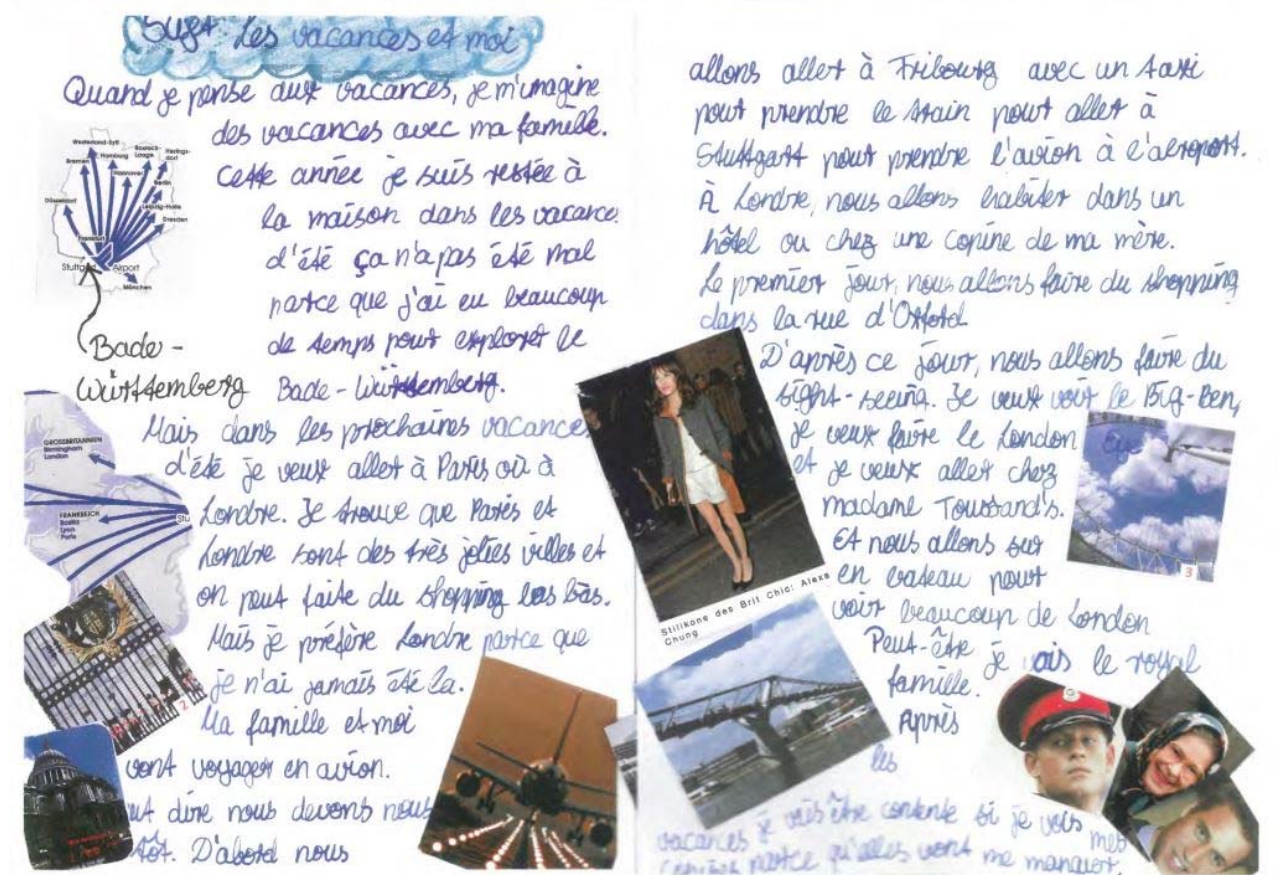 Sujet Les vacances et moi
Quand je pense aux vacances, je m'imagine
des vacances avec ma famille.
Cette année je suis restée à
la maison dans les vacance
d'été ça n'a pas été mal
parce que j'ai eu beaucoup
de temps pour explorer le
Bade-Württemberg.
Westerland-Sylt
Bremen
Hamburg
Rostock-Laage
Herings-dorf
Hannover
Berlin
Düsseldorf
Leipzig-Halle
Dresden
Frankfurt
Stuttgart Airport
München
Bade-
Württemberg
Mais dans les prochaines vacances
d'été je veux aller à Paris où à
Londre. Je trouve que Pares et
Londre sont des très jolies villes et
on peut faire du shopping las bàs.
Mais je préfère Londre parce que
je n'ai jamais été la.
Ma famille et moi
vont voyager en avion.
dire nous devons nous
tôt. D'abord nous
GROSSBRITANNIEN
Birmingham
London
FRANKREICH
Bastia
Lyon
Paris
Stu
2
allons aller à Fribourg avec un taxi
pour prendre le train pour aller à
Stuttgart pour prendre l'avion à l'aeroport.
À Londre, nous allons habiter dans un
hôtel ou chez une copine de ma mère.
Le premier jour, nous allons faire du shopping
dans la rue d'Oxford
D'après ce jour, nous allons faire du
sight-seeing. Je veux voir le Big-Ben,
je veux faire le London Eye
et je veux aller chez
madame Toussand's.
Et nous allons sur
en bateau pour
voir beaucoup de London
Peut-être je vais le royal
famille.
Après
les
vacances je vais être contente si je vois mes
copines parce qu'elles vont me manquer.
Stilikone des Brit Chic: Alexa
Chung
3